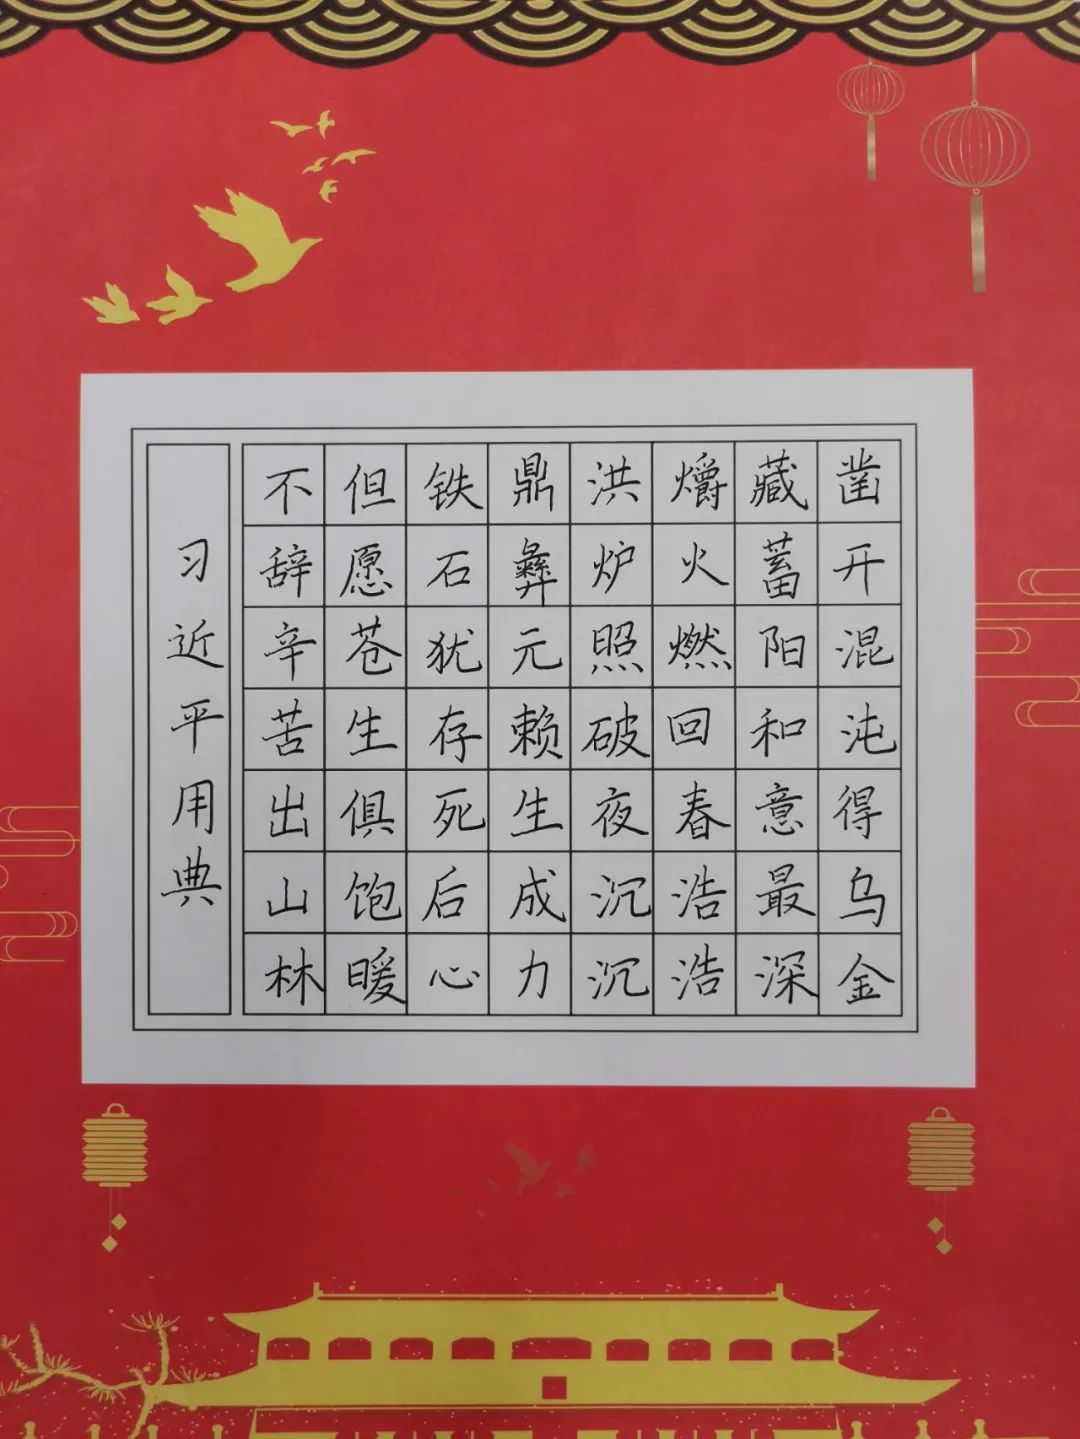 凿开混沌得乌金
藏蓄阳和意最深
爝火燃回春浩浩
洪炉照破夜沉沉
鼎彝元赖生成力
铁石犹存死后心
但愿苍生俱饱暖
不辞辛苦出山林
习近平用典